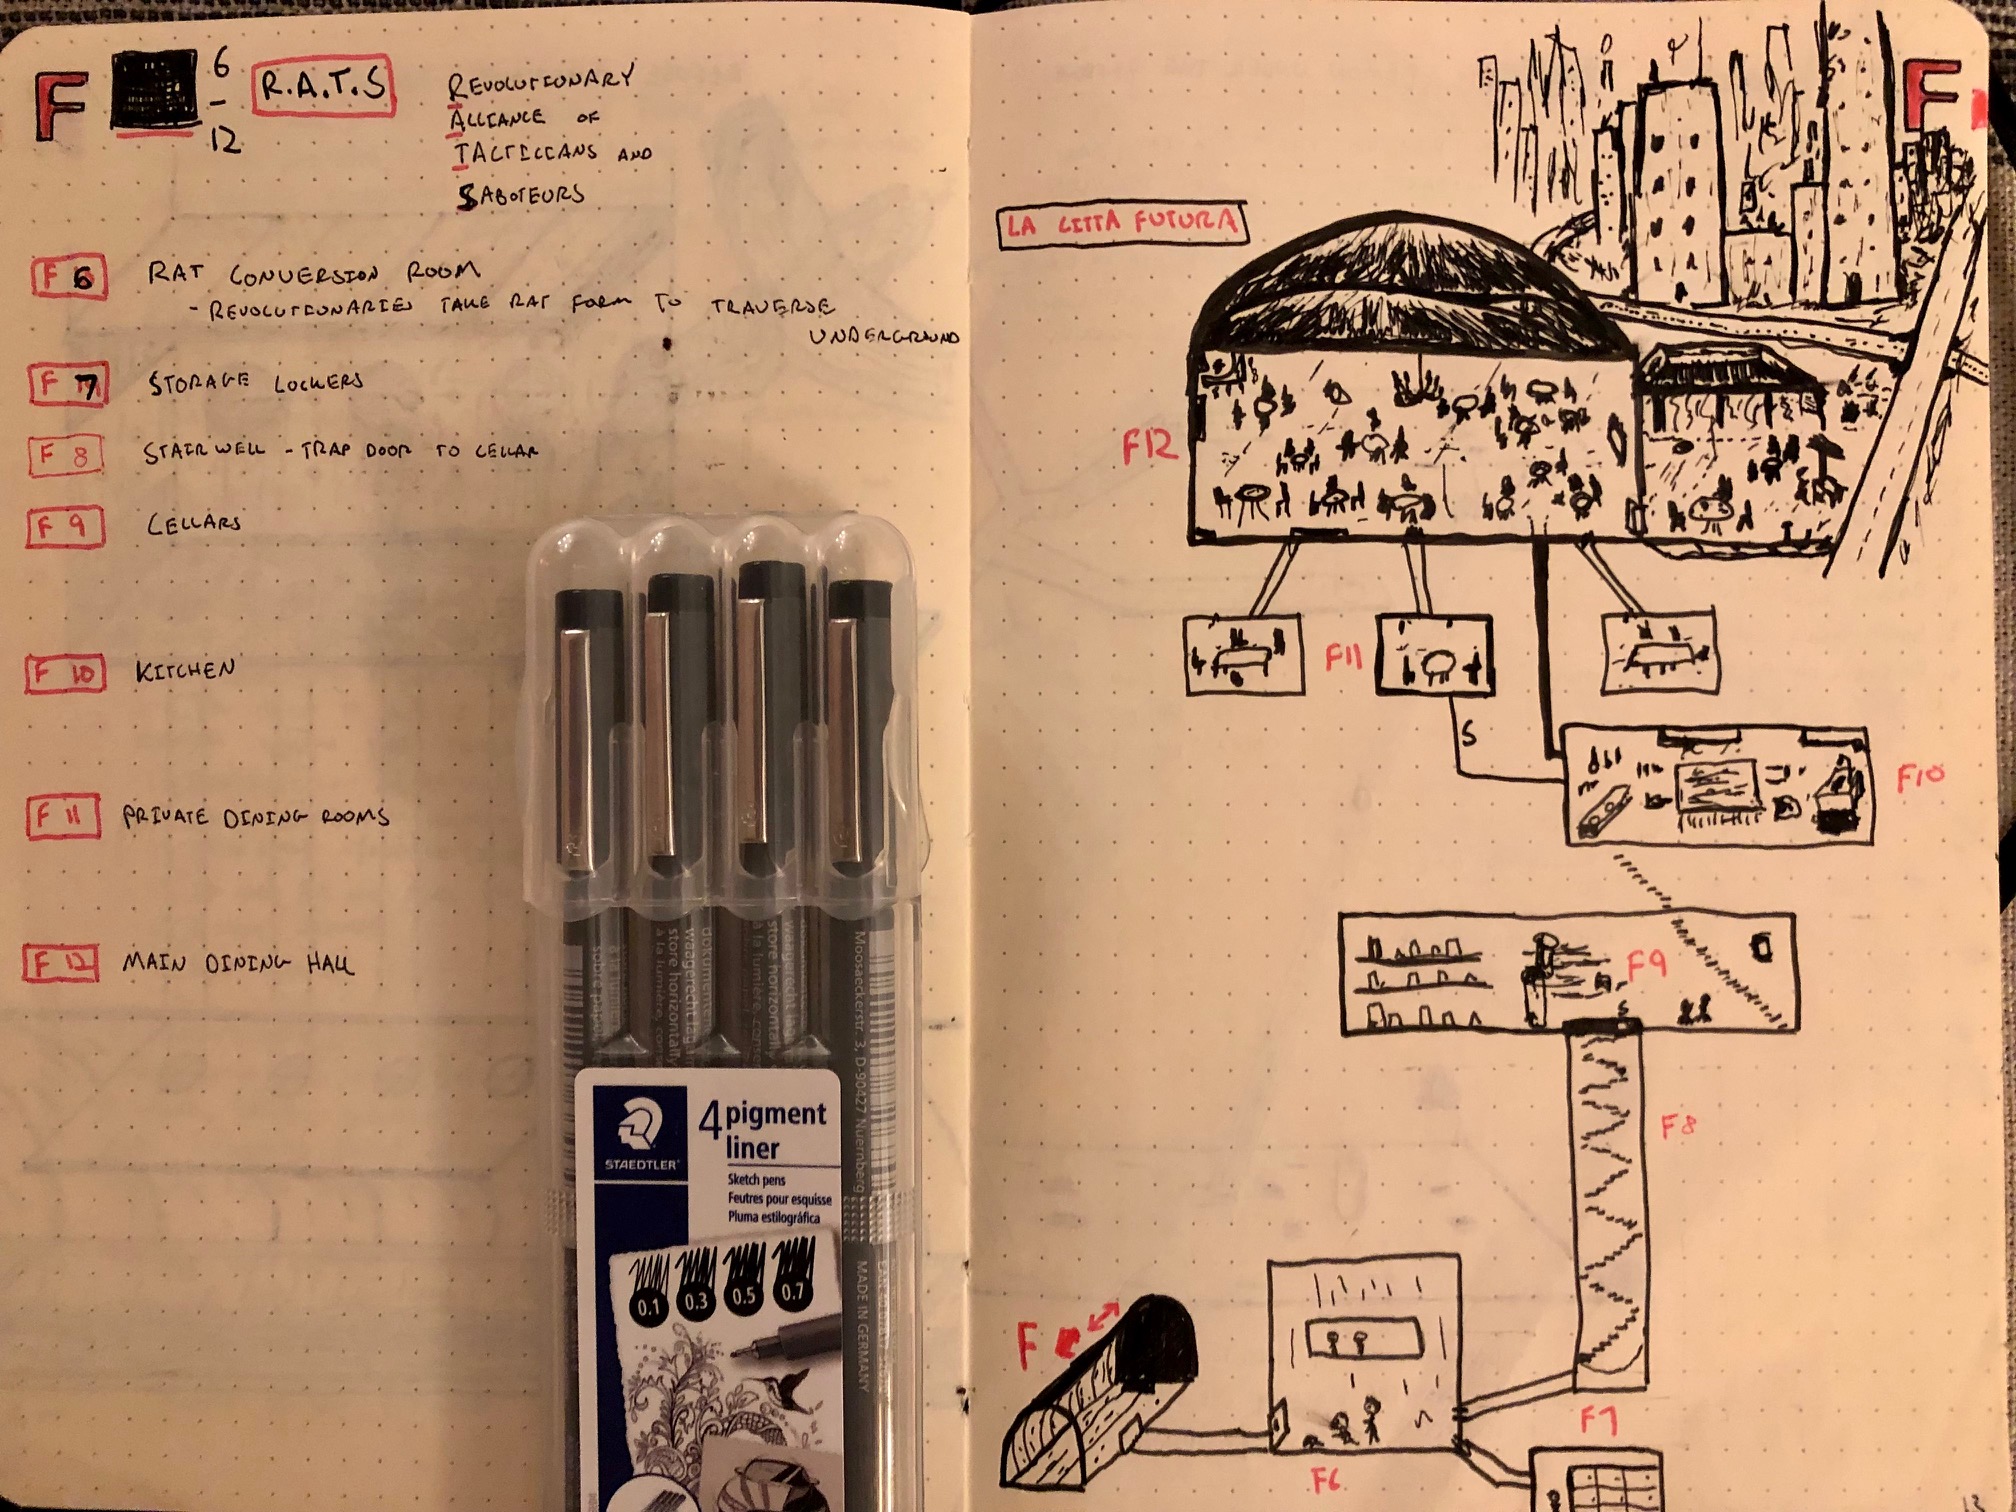 F 6 - 12 R.A.T.S
REVOLUTIONARY
ALLIANCE OF
TACTICIANS AND
SABOTEURS
F 6 RAT CONVERSION ROOM
- REVOLUTIONARIES TAKE RAT FORM TO TRAVERSE
UNDERGROUND
F 7 STORAGE LOCKERS
F 8 STAIRWELL - TRAP DOOR TO CELLAR
F 9 CELLARS
F 10 KITCHEN
F 11 PRIVATE DINING ROOMS
F 12 MAIN DINING HALL
STAEDTLER
4 pigment
liner
Sketch pens
Feutres pour esquisse
Pluma estilográfica
0.1 0.3 0.5 0.7
store horizontally
à la lumière
sobre
waagerecht
store horizontally
à la lumière
Moosaeckerstr. 3, D-90427 Nuernberg
MADE IN GERMANY
F
LA CITTA FUTURA
F12
F11
S
F10
F9
F8
F
F7
F6
13